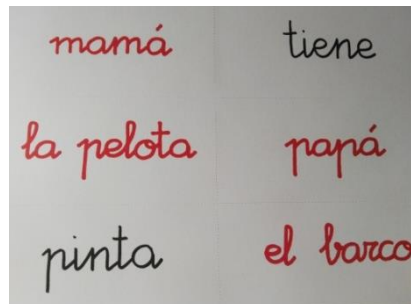 mamá tiene
la pelota papá
pinta el barco